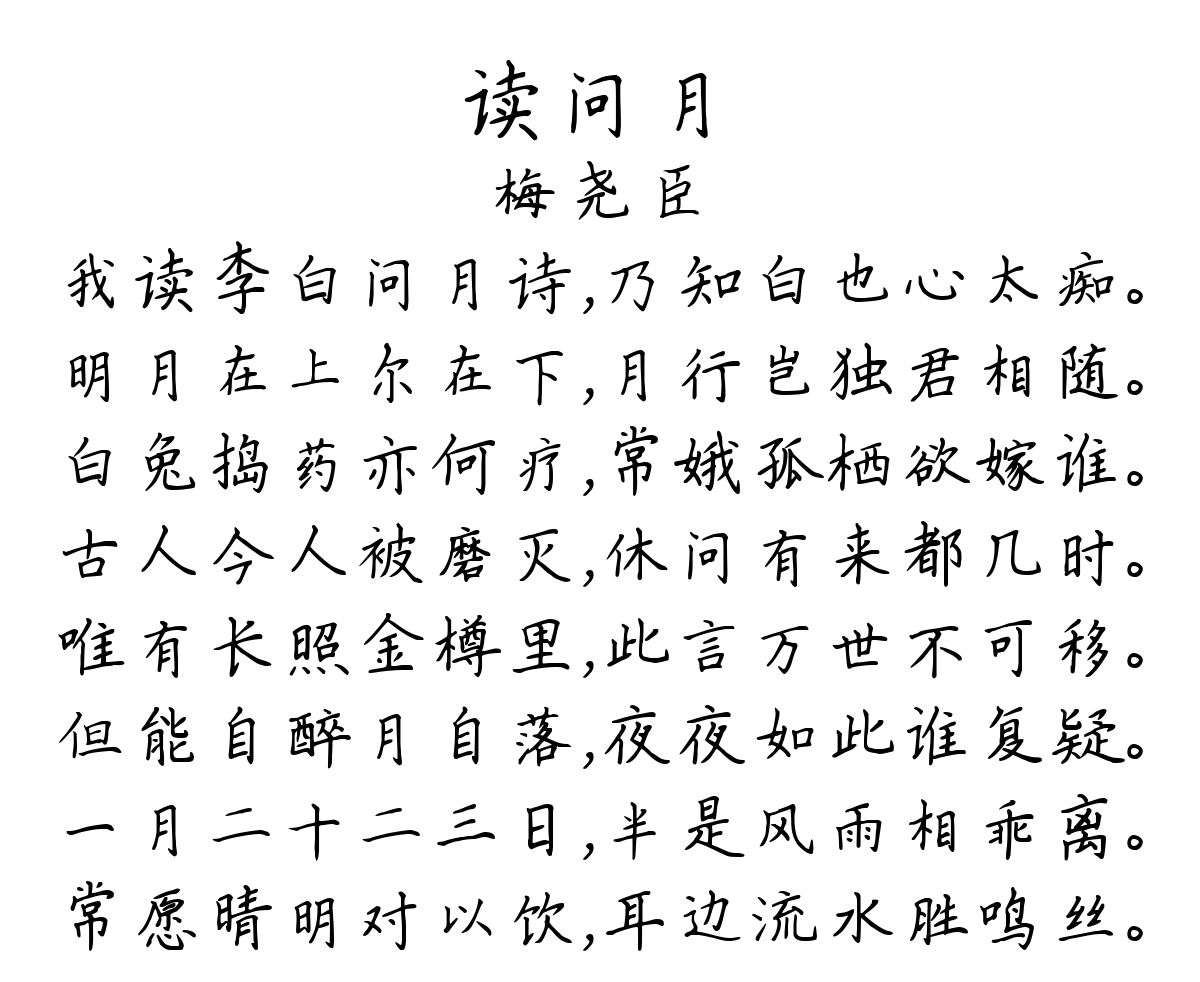 读问月
梅尧臣
我读李白问月诗,乃知白也心太痴。
明月在上尔在下,月行岂独君相随。
白兔捣药亦何疗,常娥孤栖欲嫁谁。
古人今人被磨灭,休问有来都几时。
唯有长照金樽里,此言万世不可移。
但能自醉月自落,夜夜如此谁复疑。
一月二十二三日,半是风雨相乖离。
常愿晴明对以饮,耳边流水胜鸣丝。